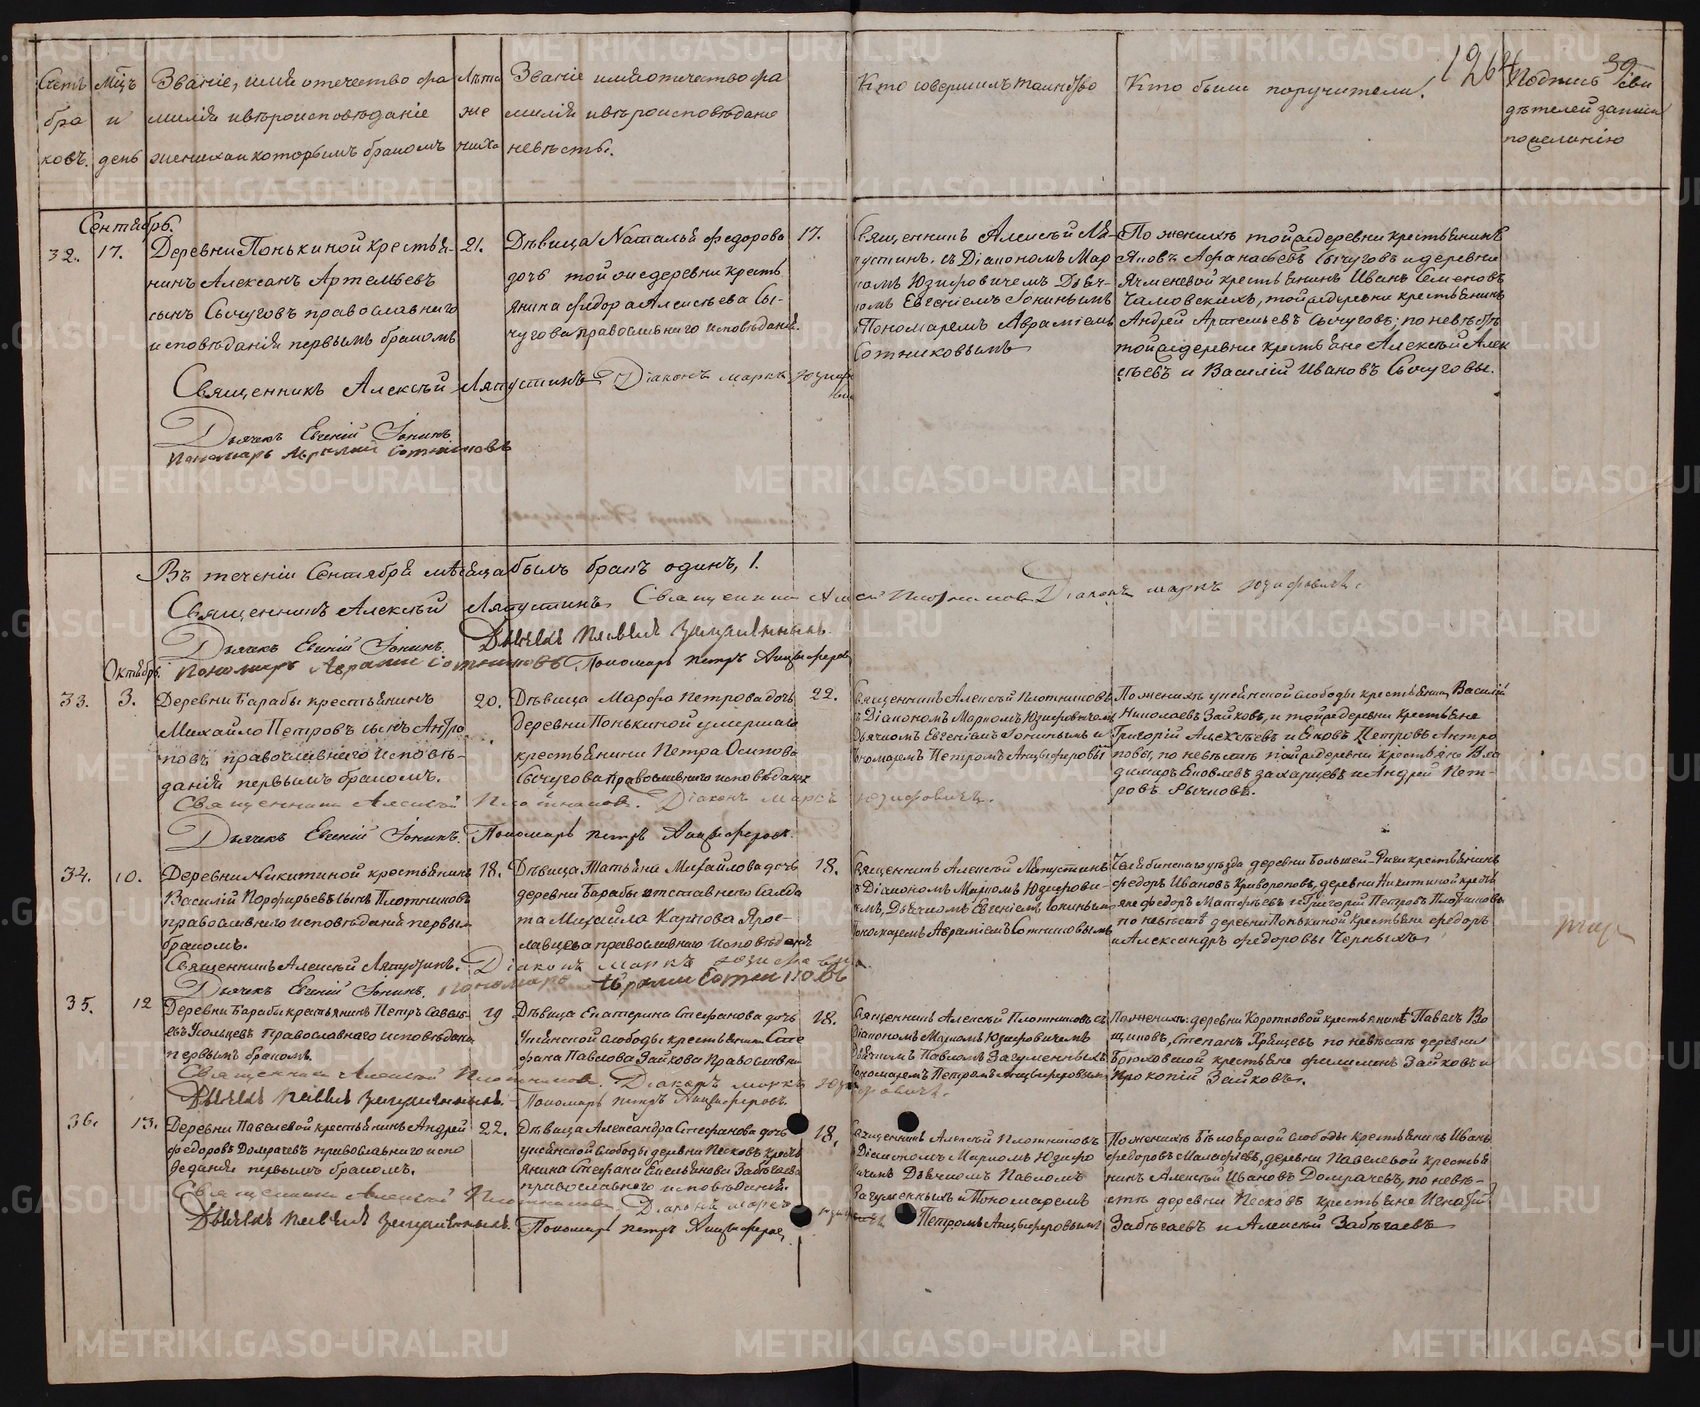 Счетъ бра ковъ.
Мцъ и день
Званіе, имя отечество фа
милія ивѣроисповѣданіе
жениха и которымъ бракомъ
Лѣта же ниха
Званіе имя отечество фа
милія ивѣроисповѣданіе
невѣсты.
Кто совершилъ таинство
Кто были поручители.
1264
39
Подпись сви
дѣтелей записи
по желанію
Сентябрь.
32. 17.
Деревни Понькиной крестья-
нинъ Алексанъ Артемьевъ
сынъ Сычуговъ православнаго
исповѣданія первымъ бракомъ
21.
Дѣвица Наталья Федорова
дочь той же деревни кресть
янина Федора Алексѣева Сы-
чугова православнаго исповѣданія.
17.
Священникъ Алексѣй Ля-
пустинъ, съ Діакономъ Мар
комъ Юзифовичемъ Дьяч-
комъ Евгеніемъ Іонинымъ
Пономаремъ Авраміемъ
Сотниковымъ
По женихѣ той же деревни крестьянинъ
Яковъ Афанасьевъ Сычуговъ и деревни
Ячменевой крестьянинъ Иванъ Семеновъ
Чамовскихъ, той же деревни крестьянинъ
Андрей Артемьевъ Сычуговъ; по невѣстѣ
той же деревни крестьяне Алексѣй Алек
сѣевъ и Василій Ивановъ Сычуговы.
Священникъ Алексѣй Ляпустинъ Діаконъ Маркъ Юзифо
вичъ
Дьячекъ Евгеній Іонинъ
Пономарь Аврамій Сотниковъ
Въ теченіи Сентября мѣсяца былъ бракъ одинъ, 1.
Священникъ Алексѣй Ляпустинъ. Священникъ Алексѣй Плотниковъ Діаконъ Маркъ Юзифовичъ.
Дьячекъ Евгеній Іонинъ. Дьячекъ Павелъ Загуменныхъ.
Октябрь. Пономарь Аврамій Сотниковъ. Пономарь Петръ Анцыферовъ
33. 3.
Деревни Барабы крестьянинъ
Михайло Петровъ сынъ Антро
повъ православнаго исповѣ-
данія первымъ бракомъ.
20.
Дѣвица Марфа Петрова дочь
деревни Понькиной умершаго
крестьянина Петра Осипова
Сычугова православнаго исповѣданія
22.
Священникъ Алексѣй Плотниковъ
съ Діакономъ Маркомъ Юзифовичемъ
Дьячкомъ Евгеніемъ Іонинымъ и
Пономаремъ Петромъ Анцыферовы
По женихѣ слободы крестьянинъ Василій
Николаевъ Зайковъ, и той же деревни крестьяне
Григорій Алексѣевъ и Яковъ Петровъ Антро
повы, по невѣстѣ той же деревни крестьяне Вла
димиръ Яковлевъ Захарцевъ и Андрей Пет-
ровъ Рычковъ.
Священникъ Алексѣй Плотниковъ. Діаконъ Маркъ Юзифовичъ.
Дьячекъ Евгеній Іонинъ. Пономарь Петръ Анцыферовъ
34. 10.
Деревни Никитиной крестьянинъ
Василій Порфирьевъ сынъ Плотниковъ
православнаго исповѣданія первым
бракомъ.
18.
Дѣвица Татьяна Михайлова дочь
деревни Барабы отставнаго солда
та Михаила Карпова Ярос-
лавцева православнаго исповѣданія
18.
Священникъ Алексѣй Ляпустинъ
съ Діакономъ Маркомъ Юзифови-
чемъ, Дьячкомъ Евгеніемъ Іонинымъ
Пономаремъ Авраміемъ Сотниковымъ
Челябинскаго уѣзда деревни Большей-Риги крестьянинъ
Федоръ Ивановъ Криворотовъ, деревни Никитиной кресть
яне Федоръ Матфѣевъ и Григорій Петровъ Плотниковы
по невѣстѣ деревни Понькиной крестьяне Федоръ
и Александръ Федоровы Черныхъ
Священникъ Алексѣй Ляпустинъ. Діаконъ Маркъ Юзифовичъ
Дьячекъ Евгеній Іонинъ. Пономарь Аврамій Сотниковъ
35. 12
Деревни Барабы крестьянинъ Петръ Савель-
евъ Усольцевъ православнаго исповѣданія
первымъ бракомъ.
19
Дѣвица Екатерина Стефанова дочь
слободы крестьянина Сте
фана Павлова Зайкова православна
18.
Священникъ Алексѣй Плотниковъ съ
Діакономъ Маркомъ Юзифовичемъ
Дьячкомъ Павломъ Загуменныхъ
Пономаремъ Петромъ Анцыферовымъ
По женихѣ: деревни Коротковой крестьянинъ Павелъ Во
щиковъ, Степанъ Хрящевъ по невѣстѣ деревни
Брюховской крестьяне Филимонъ Зайковъ и
Прокопій Зайковъ.
Священникъ Алексѣй Плотниковъ. Діаконъ Маркъ Юзифовичъ.
Дьячекъ Павелъ Загуменныхъ. Пономарь Петръ Анцыферовъ
36. 13.
Деревни Павелевой крестьянинъ Андрей
Федоровъ Домрачевъ православнаго испо
веданія первымъ бракомъ.
22.
Дѣвица Александра Стефанова дочь
слободы деревни Песковъ кресть
янина Стефана Емельянова Забѣгаева
православнаго исповѣданія.
18.
Священникъ Алексѣй Плотниковъ
съ Діакономъ Маркомъ Юзифо
вичемъ Дьячкомъ Павломъ
Загуменныхъ и Пономаремъ
Петромъ Анцыферовымъ
По женихѣ слободы крестьянинъ Иванъ
Федоровъ Малафѣевъ, деревни Павелевой крестья
нинъ Алексѣй Ивановъ Домрачевъ, по невѣ-
стѣ деревни Песковъ крестьяне
Забѣгаевъ и Алексѣй Забѣгаевъ
Священникъ Алексѣй Плотниковъ. Діаконъ Маркъ Юзифовичъ
Дьячекъ Павелъ Загуменныхъ. Пономарь Петръ Анцыферовъ
METRIKI.GASO-URAL.RU